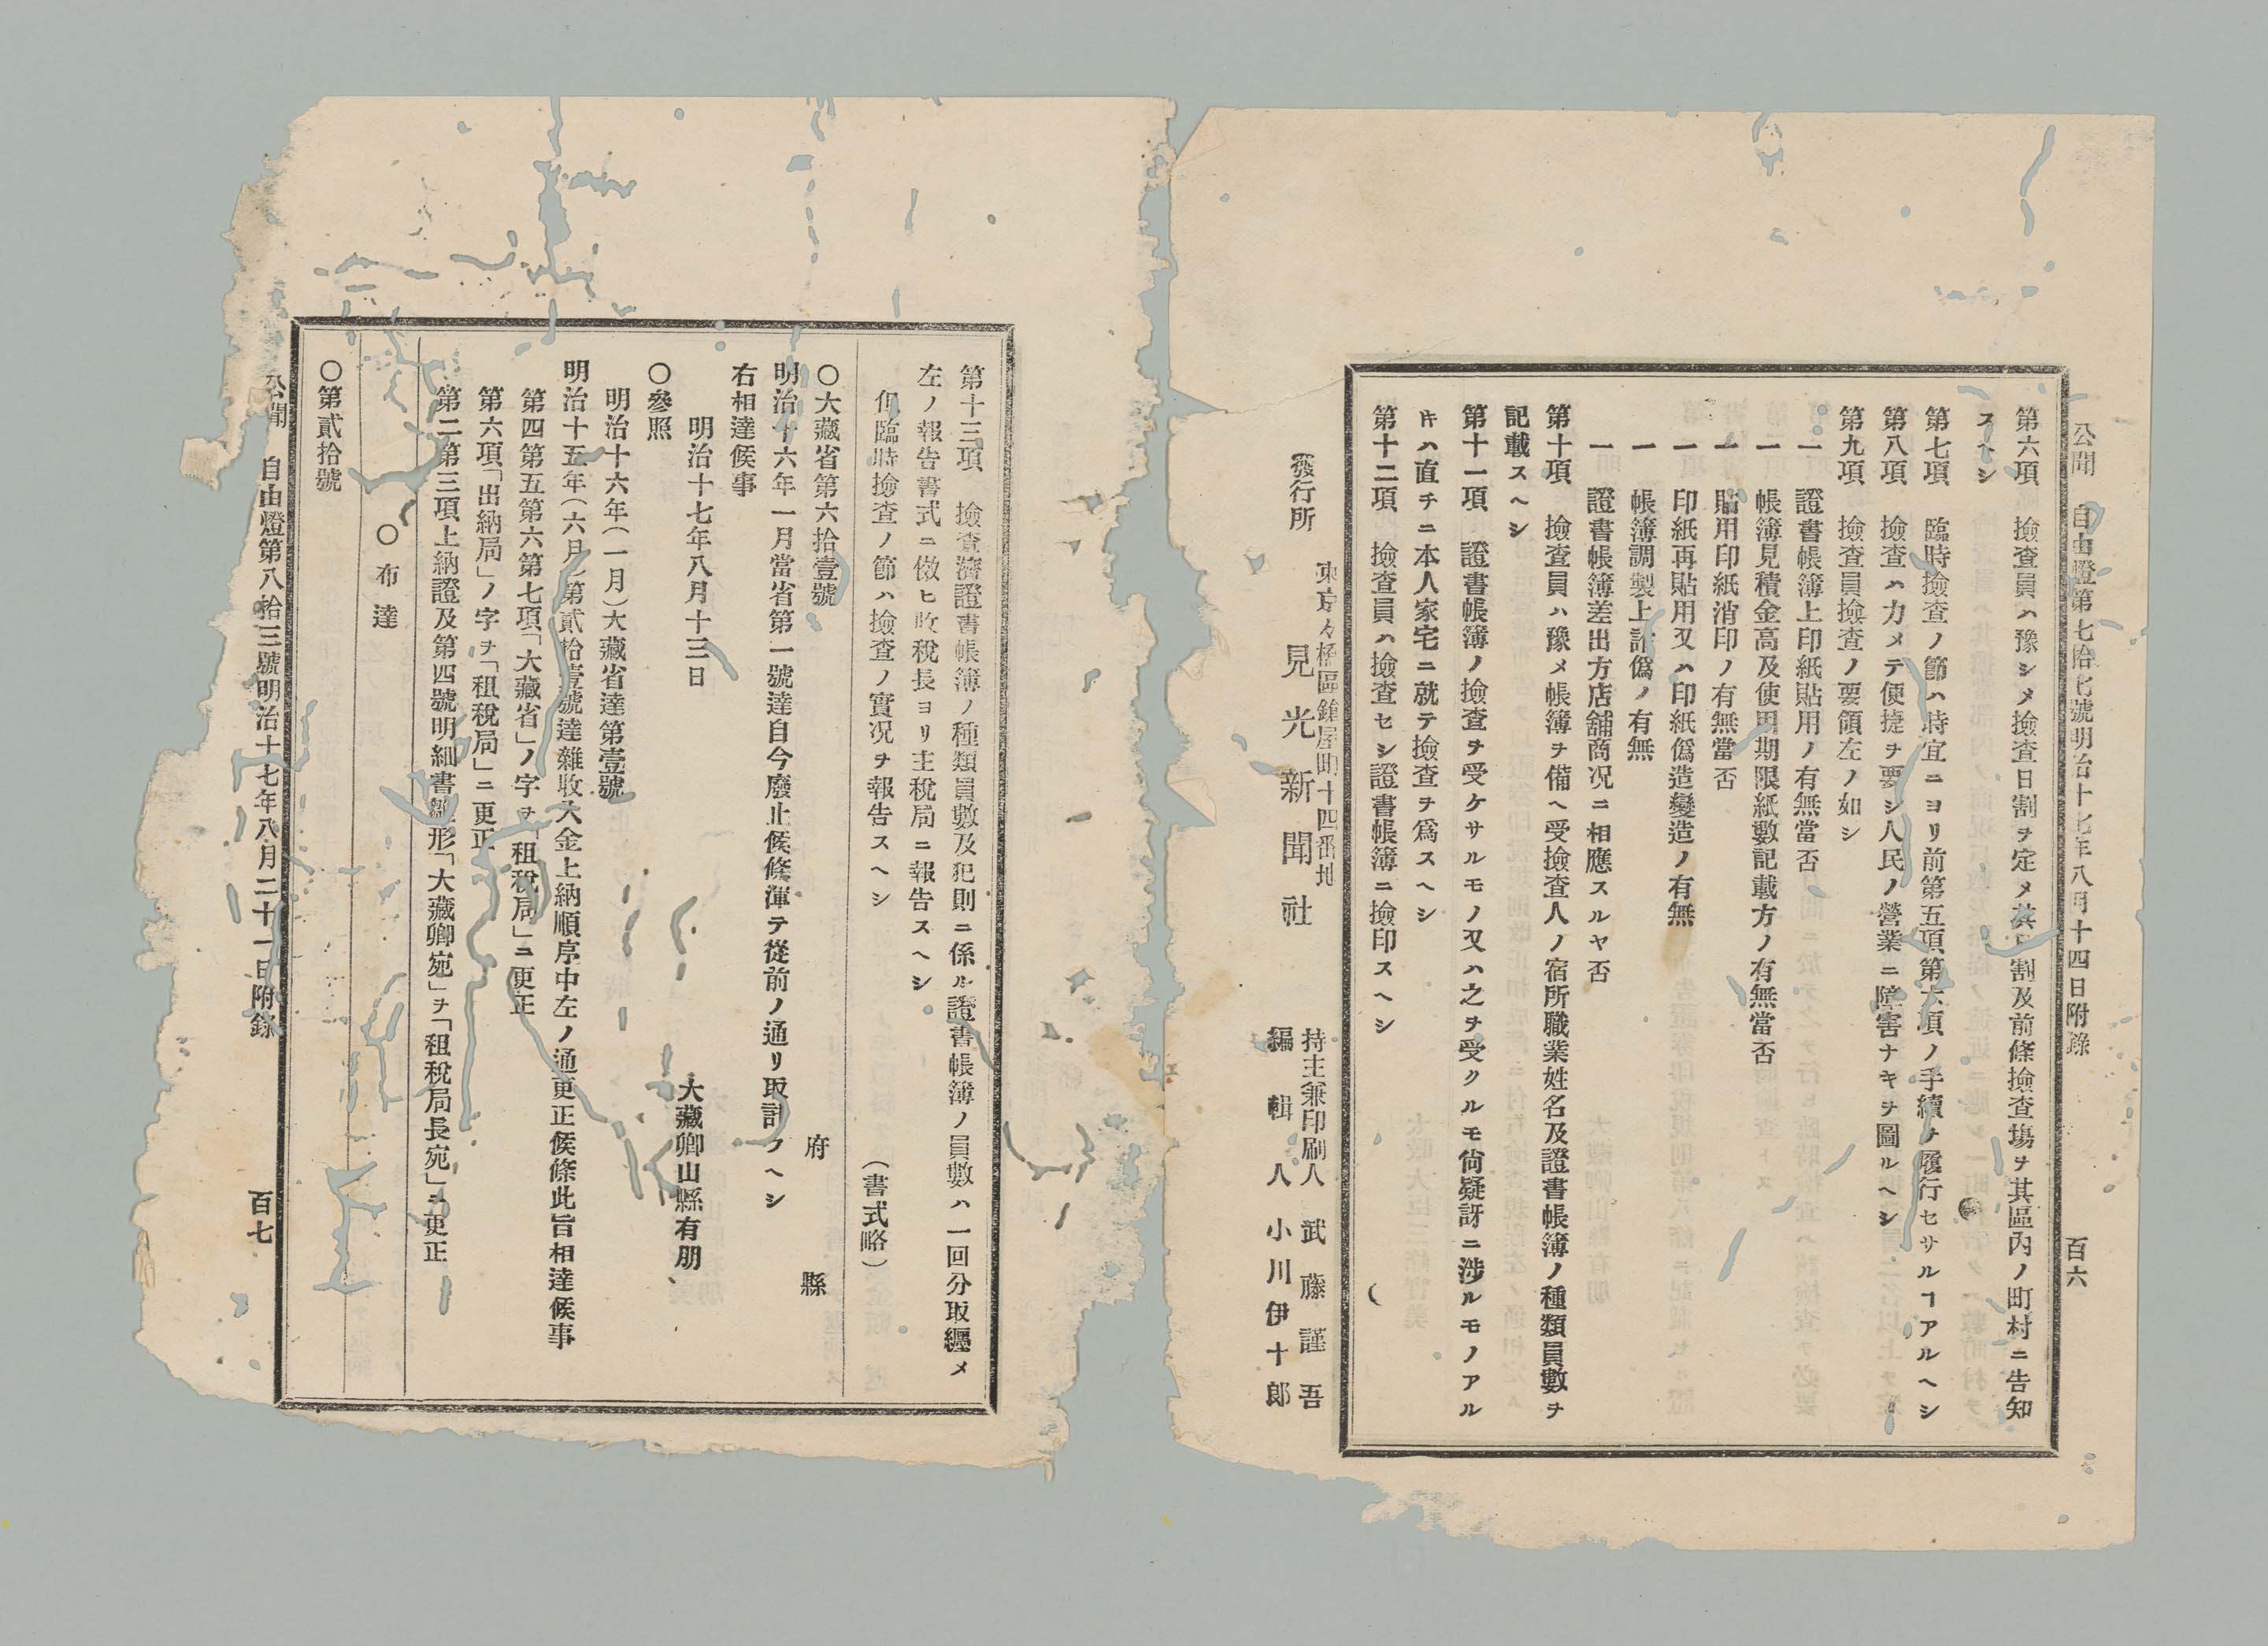 公聞　自由燈第七拾七號明治十七年八月十四日附錄　百六
第六項　撿查員ハ豫シメ撿查日割ヲ定メ其日割及前條撿查塲ヲ其區內ノ町村ニ告知
スヘシ
第七項　臨時撿查ノ節ハ時宜ニヨリ前第五項第六項ノ手續ヲ履行セサルヿアルヘシ
第八項　撿查ハ力メテ便捷ヲ要シ人民ノ營業ニ障害ナキヲ圖ルヘシ
第九項　撿查員撿查ノ要領左ノ如シ
一　證書帳簿上印紙貼用ノ有無當否
一　帳簿見積金高及使用期限紙數記載方ノ有無當否
一　貼用印紙消印ノ有無當否
一　印紙再貼用又ハ印紙僞造變造ノ有無
一　帳簿調製上詐僞ノ有無
一　證書帳簿差出方店舖商况ニ相應スルヤ否
第十項　撿查員ハ豫メ帳簿ヲ備ヘ受撿查人ノ宿所職業姓名及證書帳簿ノ種類員數ヲ
記載スヘシ
第十一項　證書帳簿ノ撿查ヲ受ケサルモノ又ハ之ヲ受クルモ尙疑訝ニ涉ルモノアル
キハ直チニ本人家宅ニ就テ撿查ヲ爲スヘシ
第十二項　撿查員ハ撿查セシ證書帳簿ニ撿印スヘシ
東京々橋區鎗屋町十四番地
發行所　見光新聞社
持主兼印刷人　武藤謹吾
編輯人　小川伊十郎
第十三項　撿查濟證書帳簿ノ種類員數及犯則ニ係ル證書帳簿ノ員數ハ一回分取纒メ
左ノ報告書式ニ倣ヒ收稅長ヨリ主稅局ニ報告スヘシ
但臨時撿查ノ節ハ撿查ノ實况ヲ報告スヘシ　（書式略）
〇大藏省第六拾壹號　府縣
明治十六年一月當省第一號達自今廢止候條渾テ從前ノ通リ取計フヘシ
右相達候事
明治十七年八月十三日　大藏卿山縣有朋
〇參照
明治十六年（一月）大藏省達第壹號
明治十五年（六月）第貳拾壹號達雜收入金上納順序中左ノ通更正候條此旨相達候事
第四第五第六第七項「大藏省」ノ字ヲ「租稅局」ニ更正
第六項「出納局」ノ字ヲ「租稅局」ニ更正
第二第三項上納證及第四號明細書雛形「大藏卿宛」ヲ「租稅局長宛」ヲ更正
〇布達
〇第貳拾號
公聞　自由燈第八拾三號明治十七年八月二十一日附錄　百七